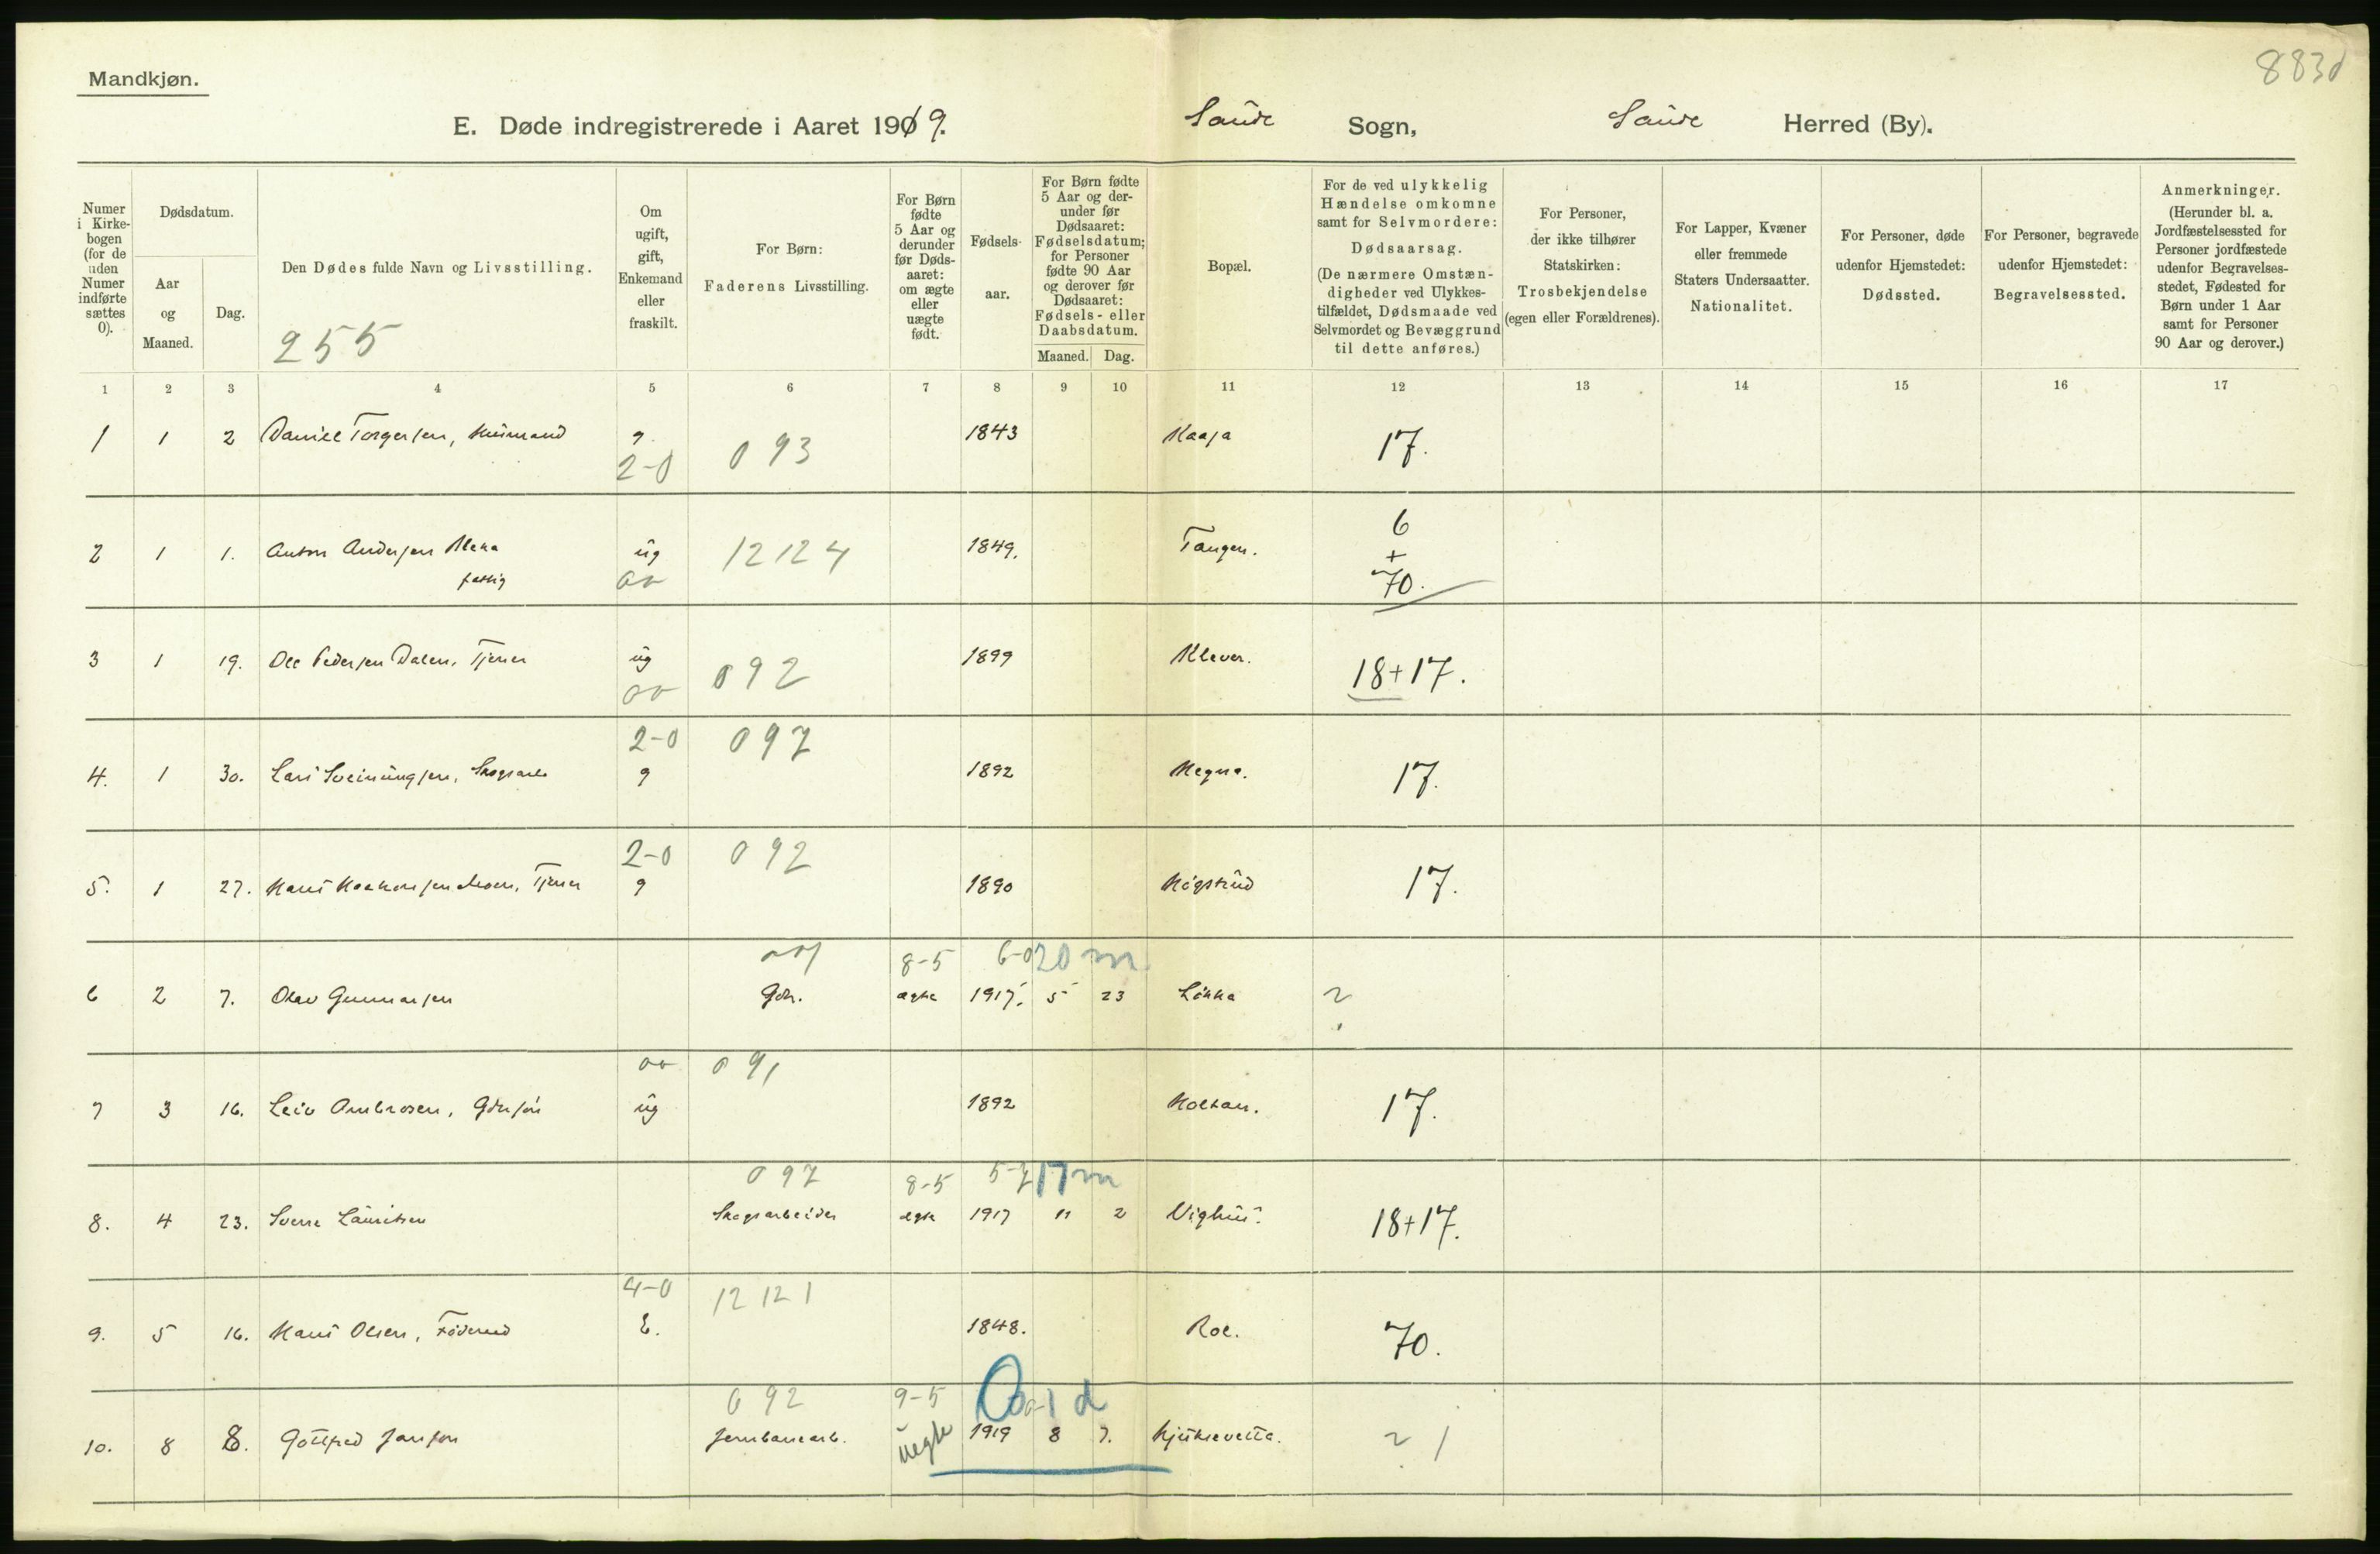 883d
Mandkjøn.
E. Døde indregistrerede i Aaret 1919. Saude Sogn, Saude Herred (By).
Numer i Kirkebogen (for de uden Numer indførte sættes 0).
Dødsdatum.
Aar og Maaned.
Dag.
Den Dødes fulde Navn og Livsstilling.
255
Om ugift, gift, Enkemand eller fraskilt.
For Børn: Faderens Livsstilling.
For Børn fødte 5 Aar og derunder før Dødsaaret: om ægte eller uægte født.
Fødselsaar.
For Børn fødte 5 Aar og derunder før Dødsaaret: Fødselsdatum; for Personer fødte 90 Aar og derover før Dødsaaret: Fødsels- eller Daabsdatum.
Maaned. Dag.
Bopæl.
For de ved ulykkelig Hændelse omkomne samt for Selvmordere: Dødsaarsag. (De nærmere Omstændigheder ved Ulykkestilfældet, Dødsmaade ved Selvmordet og Bevæggrund til dette anføres.)
For Personer, der ikke tilhører Statskirken: Trosbekjendelse (egen eller Forældrenes).
For Lapper, Kvæner eller fremmede Staters Undersaatter. Nationalitet.
For Personer, døde udenfor Hjemstedet: Dødssted.
For Personer, begravede udenfor Hjemstedet: Begravelsessted.
Anmerkninger. (Herunder bl. a. Jordfæstelsessted for Personer jordfæstede udenfor Begravelsesstedet, Fødested for Børn under 1 Aar samt for Personer 90 Aar og derover.)
1 2 3 4 5 6 7 8 9 10 11 12 13 14 15 16 17
1 1 2 Daniel Torgersen, Husmand g 1843 Kaasa 17.
2-0 093
2 1 1. Anton Andersen Bleka ug 12124 1849. Tangen. 6 + 70.
fattig
3 1 19. Ole Pedersen Dalen, Tjener ug 092 1899 Klever. 18+17.
2-0 097
4. 1 30. Lars Sveinungsen, Skogsarb g 1892 Hegna. 17.
2-0 092
5. 1 27. Hans Haakonsen Moen, Tjener g 1890 Høgstud 17.
8-5 6-0 20 m
6 2 7. Olav Gunnarsen Gdr. ægte 1917. 5 23 Løkka ?
091
7 3 16. Leiv Ambrosen, Gdrsøn ug 1892 Holtan. 17.
097 8-5 5-7 17 m
8. 4 23. Sverre Lauritsen Skogsarbeider ægte 1917 11 2 Vighus. 18+17.
4-0 12121
9. 5 16. Hans Olsen, Føderaad E. 1848. Roe. 70.
092 9-5 0-1 d
10. 8 8. Gottfred Janson Jernbanearb. uegte 1919 8 7. ? 1